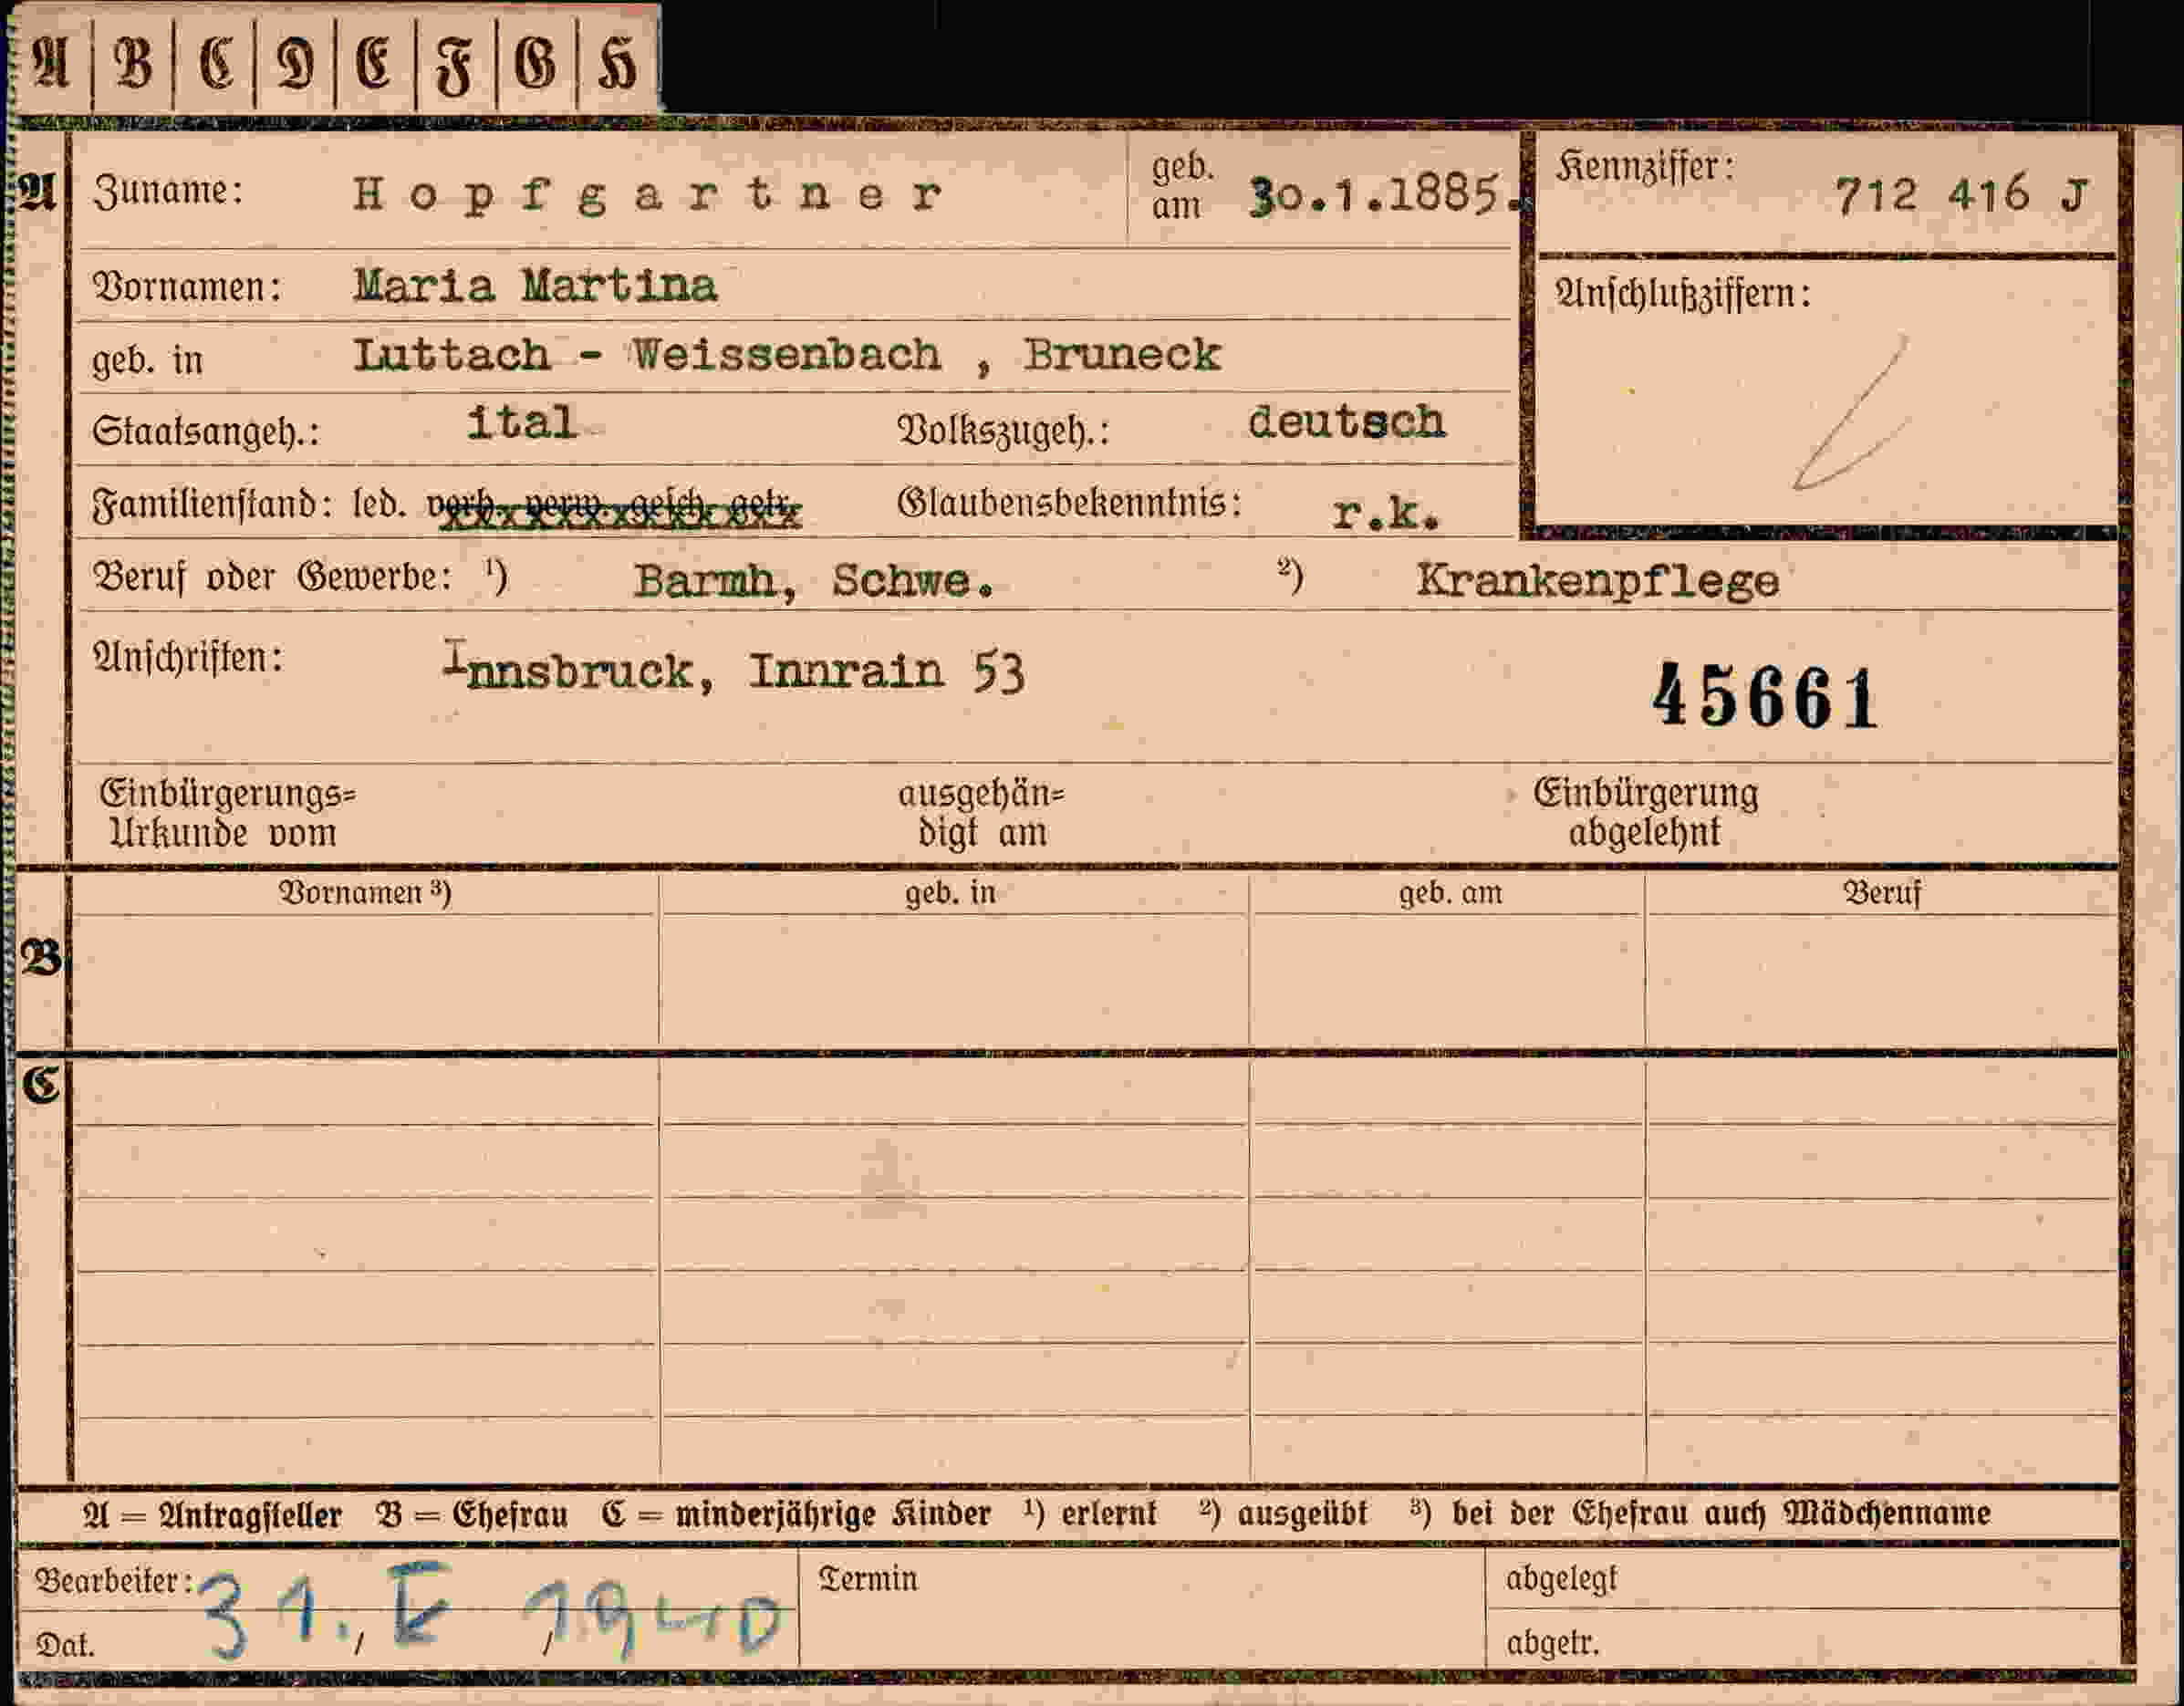 A B C D E F G H
A Zuname: Hopfgartner geb. am 30.1.1885. Kennziffer: 712 416 J
Vornamen: Maria Martina Anschlußziffern:
geb. in Luttach - Weissenbach , Bruneck
Staatsangeh.: ital Volkszugeh.: deutsch
Familienstand: led. verh. verw. gesch. getr. Glaubensbekenntnis: r.k.
Beruf oder Gewerbe: ¹) Barmh, Schwe. ²) Krankenpflege
Anschriften: Innsbruck, Innrain 53
45661
Einbürgerungs= ausgehän= Einbürgerung
Urkunde vom digt am abgelehnt
Vornamen ³) geb. in geb. am Beruf
B
C
A = Antragsteller B = Ehefrau C = minderjährige Kinder ¹) erlernt ²) ausgeübt ³) bei der Ehefrau auch Mädchenname
Bearbeiter: Termin abgelegt
31. 1940
Dat. / / abgetr.